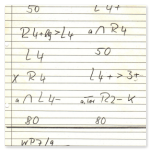 50 L4+
R4+Lg>L4 a∩R4
L4 50
x R4 L4+>3+
a∩L4- R2-K
80 80
WP7/a